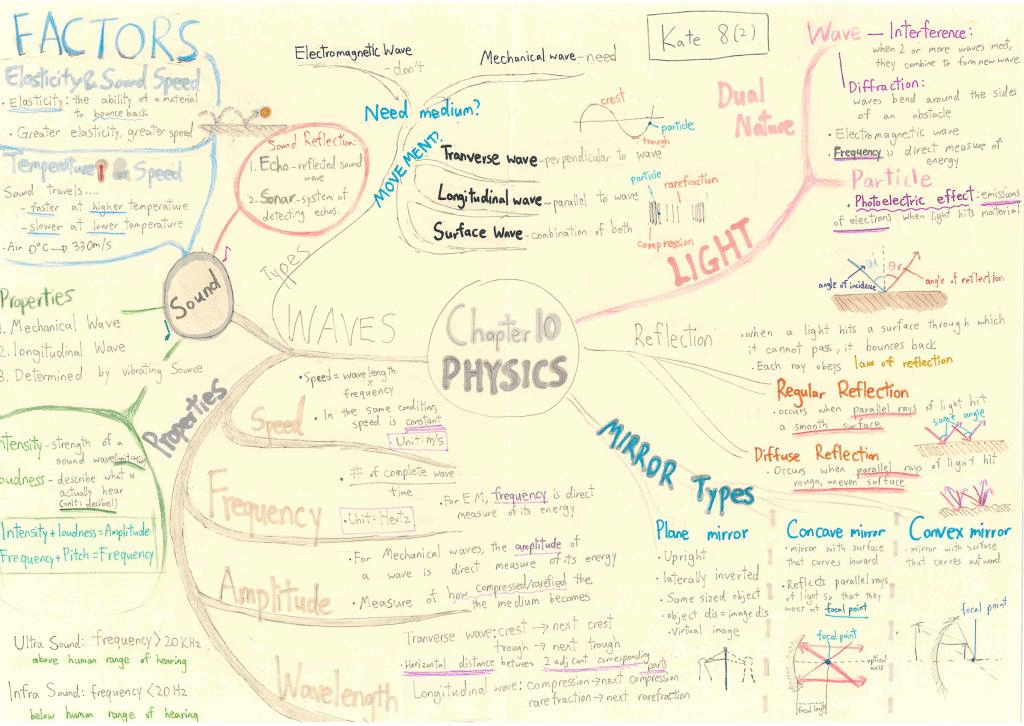 FACTORS
Elasticity & Sound Speed
• Elasticity: the ability of a material
to bounce back
• Greater elasticity, greater speed
Temperature & Speed
Sound travels....
- faster at higher temperature
- slower at lower temperature
• Air 0°C → 330m/s
Sound Reflection:
1. Echo - reflected sound
wave
2. Sonar - system of
detecting echos.
Sound
Properties
1. Mechanical Wave
2. longitudinal Wave
3. Determined by vibrating Source
ntensity - strength of a
sound wave
oudness - describe what u
actually hear
(unit: decibel)
Intensity + loudness = Amplitude
Frequency + Pitch = Frequency
Ultra Sound: frequency > 20 KHz
above human range of hearing
Infra Sound: frequency < 20 Hz
below human range of hearing
Electromagnetic Wave
- don't
Mechanical wave - need
Need medium?
MOVEMENT?
Tranverse wave - perpendicular to wave
Longitudinal wave - parallel to wave
Surface Wave - combination of both
crest
particle
trough
particle
rarefraction
compression
Types
WAVES
Chapter 10
PHYSICS
Kate 8(2)
LIGHT
Dual
Nature
Wave — Interference:
when 2 or more waves meet,
they combine to form new wave.
Diffraction:
waves bend around the sides
of an obstacle
• Electromagnetic wave
• Frequency is direct measure of
energy
Particle
• Photoelectric effect: emissions
of electrons when light hits material
θi
θr
angle of incidence
angle of reflection
Reflection
• when a light hits a surface through which
it cannot pass, it bounces back
• Each ray obeys law of reflection
Regular Reflection
• occurs when parallel rays of light hit
a smooth surface
same angle
Diffuse Reflection
• Occurs when parallel rays of light hit
rough, uneven surface
MIRROR TYPES
Plane mirror
• Upright
• laterally inverted
• Same sized object
• object dis = image dis
• Virtual image
Concave mirror
• mirror with surface
that curves inward
• Reflects parallel rays
of light so that they
meet at focal point
focal point
optical
axis
focal length
Convex mirror
• mirror with surface
that curves outward
focal point
Properties
Speed
• Speed = wavelength
x
frequency
• In the same condition,
speed is constant
Unit: m/s
Frequency
• # of complete wave
time
• Unit: Hertz
• For E.M, frequency is direct
measure of its energy
Amplitude
• For Mechanical waves, the amplitude of
a wave is direct measure of its energy
• Measure of how compressed/rarefied the
the medium becomes
Wavelength
Tranverse wave: crest → next crest
trough → next trough
• Horizontal distance between 2 adjcant corresponding parts
Longitudinal wave: compression → next compression
rarefraction → next rarefraction